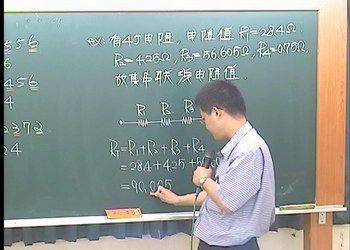 5 5 6
6
4 5 6
4
2 3 7 3
2 4
ex: 有4个电阻,电阻值 R₁=28.4Ω.
R₂=4.25Ω, R₃=56.605Ω, R₄=0.75Ω.
故其串联 电阻值.
R₁ R₂ R₃
R_T=R₁+R₂+R₃+R₄
=28.4+4.25+5
=90.005